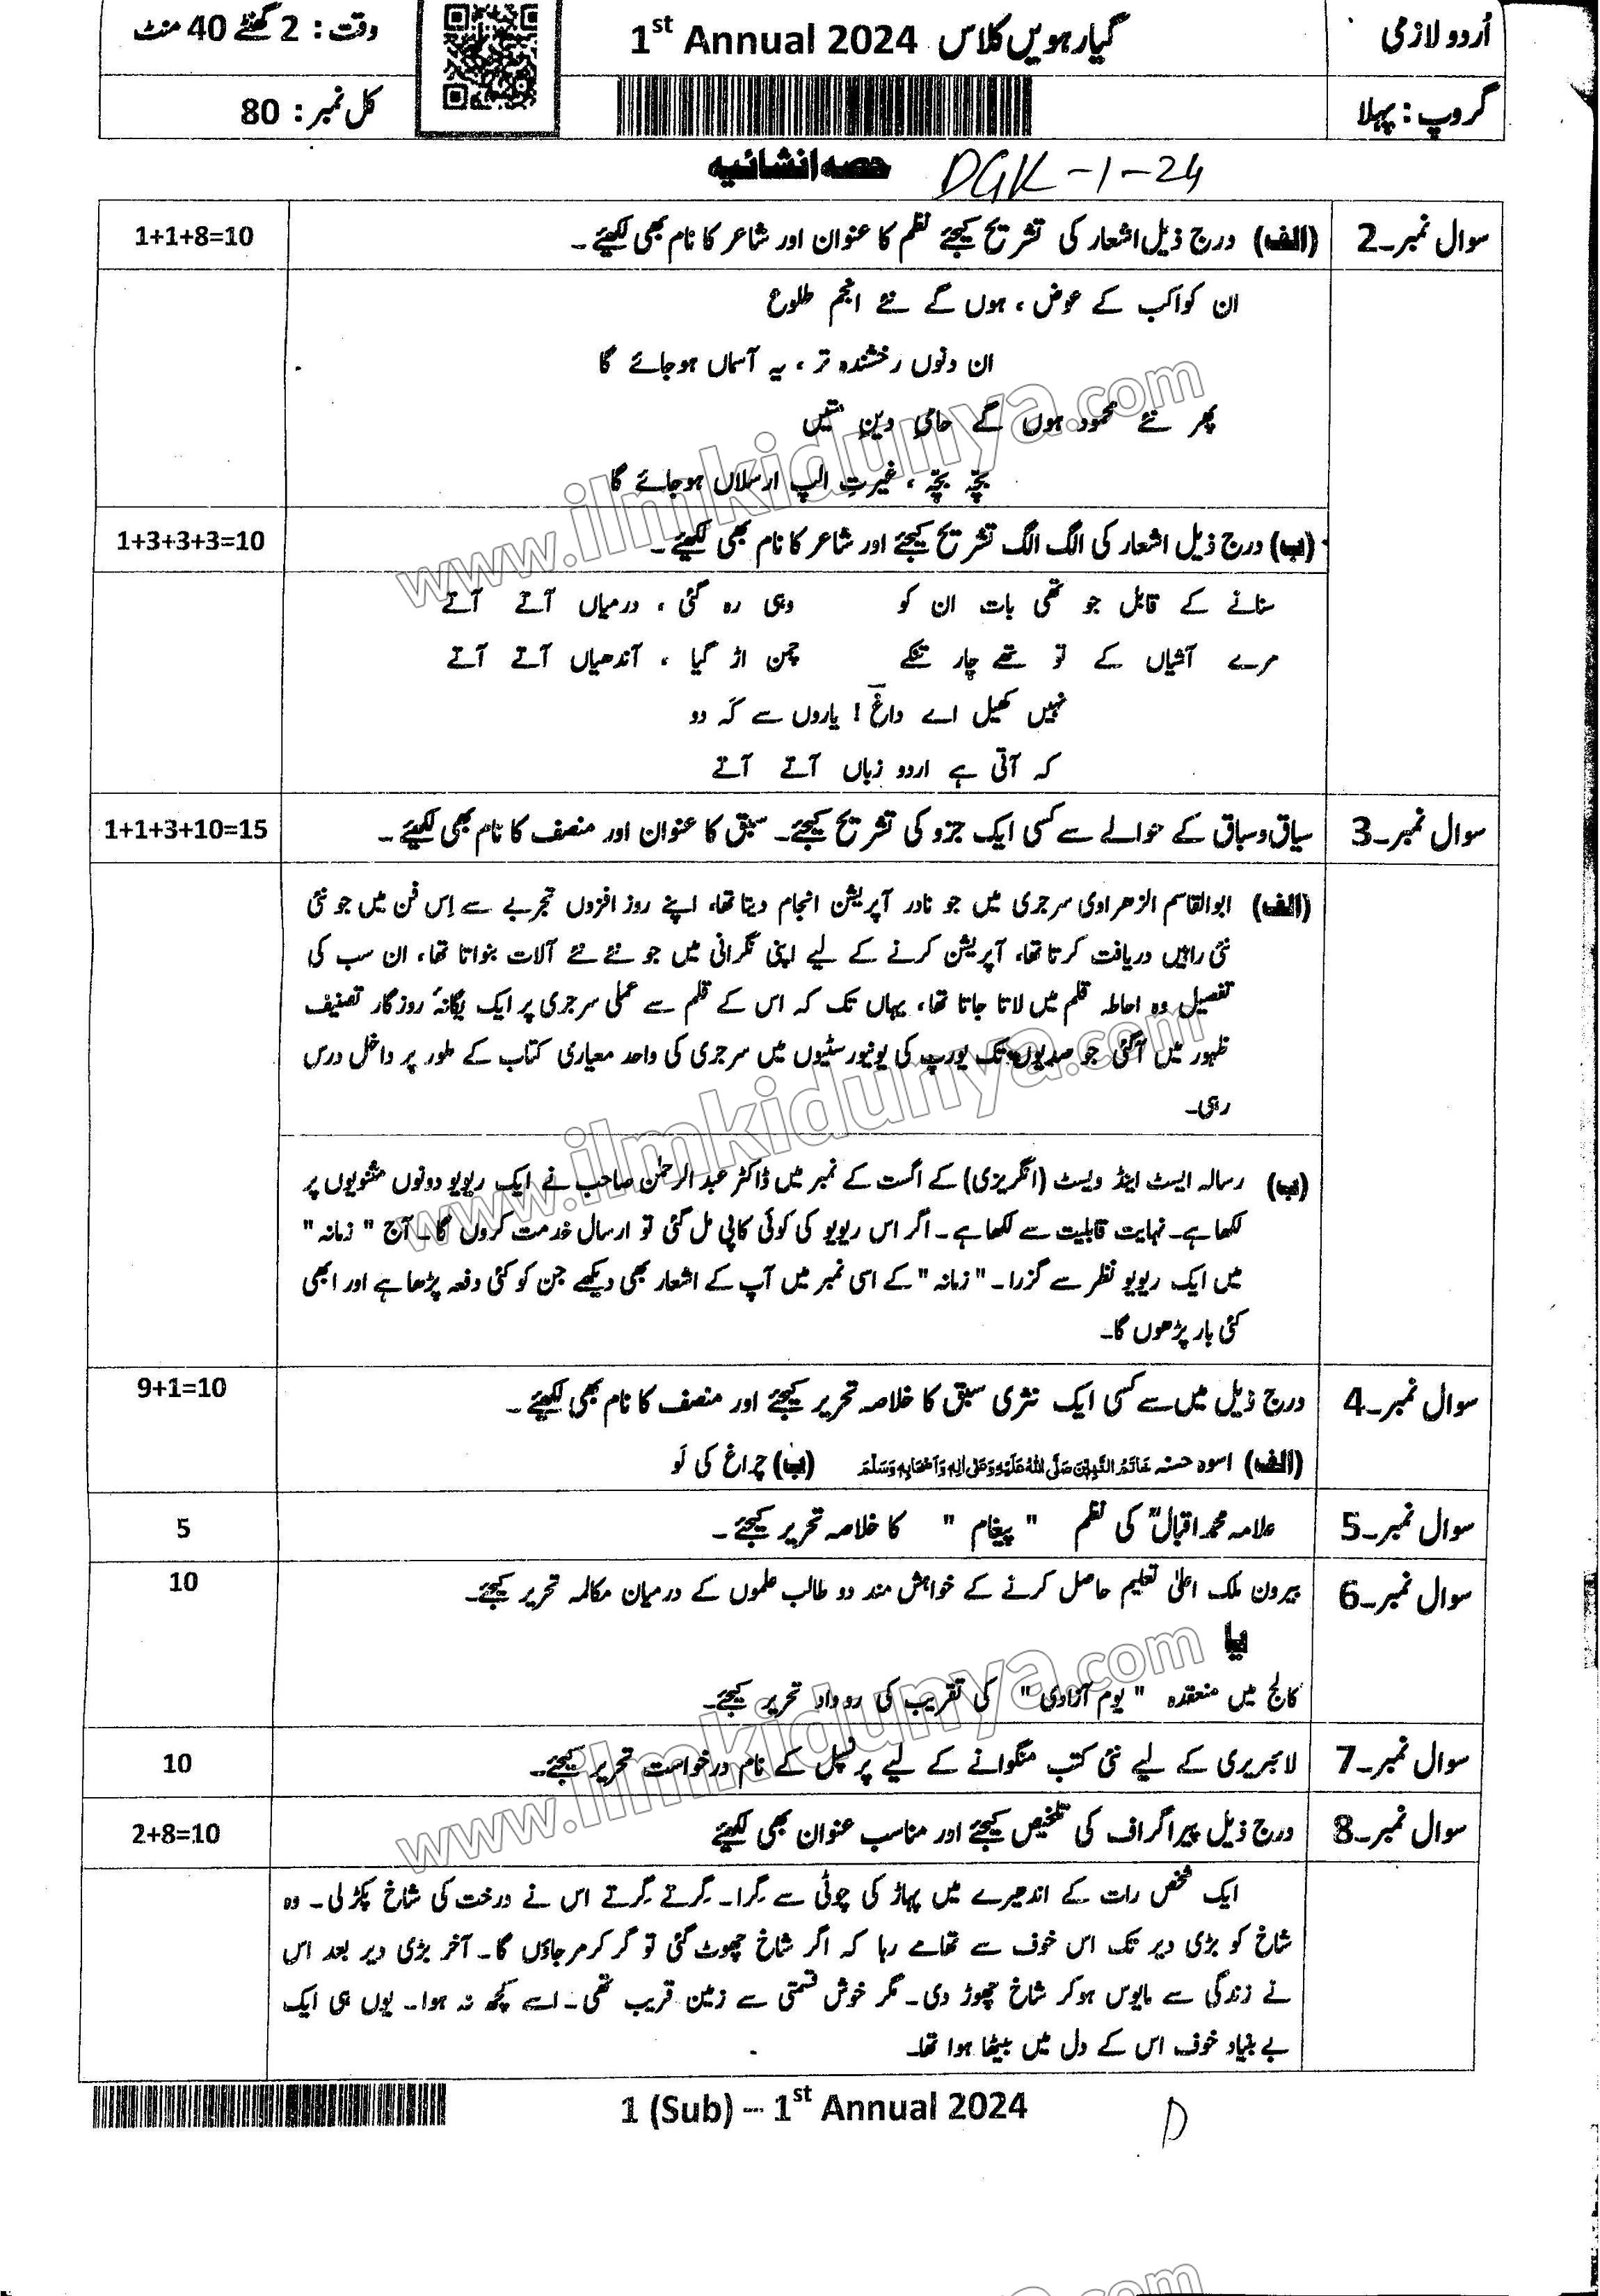 اُردو لازمی
گیارہویں کلاس 1st Annual 2024
وقت: 2 گھنٹے 40 منٹ
گروپ: پہلا
کل نمبر: 80
حصہ انشائیہ
DGK-1-24
سوال نمبر۔2 (الف) درج ذیل اشعار کی تشریح کیجئے نظم کا عنوان اور شاعر کا نام بھی لکھیئے۔ 1+1+8=10
ان کواکب کے عوض، ہوں گے نئے انجم طلوع
ان دنوں رخشندہ تر، یہ آسماں ہوجائے گا
پھر نئے محمود ہوں گے حامیِ دینِ متیں
بچّہ بچّہ، غیرتِ الپ ارسلاں ہوجائے گا
(ب) درج ذیل اشعار کی الگ الگ تشریح کیجئے اور شاعر کا نام بھی لکھیئے۔ 1+3+3+3=10
سنانے کے قابل جو تھی بات ان کو وہی رہ گئی، درمیاں آتے آتے
مرے آشیاں کے تو تھے چار تنکے چمن اڑ گیا، آندھیاں آتے آتے
نہیں کھیل اے داغؔ! یاروں سے کہ دو
کہ آتی ہے اردو زباں آتے آتے
سوال نمبر۔3 سیاق وسباق کے حوالے سے کسی ایک جزو کی تشریح کیجئے۔ سبق کا عنوان اور منصف کا نام بھی لکھیئے۔ 1+1+3+10=15
(الف) ابوالقاسم الزھراوی سرجری میں جو نادر آپریشن انجام دیتا تھا، اپنے روز افزوں تجربے سے اِس فن میں جو نئی
نئی راہیں دریافت کرتا تھا، آپریشن کرنے کے لیے اپنی نگرانی میں جو نئے نئے آلات بنواتا تھا، ان سب کی
تفصیل وہ احاطہ قلم میں لاتا جاتا تھا، یہاں تک کہ اس کے قلم سے عملی سرجری پر ایک یگانۂ روزگار تصنیف
ظہور میں آگئی جو صدیوں تک یورپ کی یونیورسٹیوں میں سرجری کی واحد معیاری کتاب کے طور پر داخل درس
رہی۔
(ب) رسالہ ایسٹ اینڈ ویسٹ (انگریزی) کے اگست کے نمبر میں ڈاکٹر عبدالرحمٰن صاحب نے ایک ریویو دونوں مثنویوں پر
لکھا ہے۔ نہایت قابلیت سے لکھا ہے۔ اگر اس ریویو کی کوئی کاپی مل گئی تو ارسال خدمت کروں گا۔ آج "زمانہ"
میں ایک ریویو نظر سے گزرا۔ "زمانہ" کے اسی نمبر میں آپ کے اشعار بھی دیکھے جن کو کئی دفعہ پڑھا ہے اور ابھی
کئی بار پڑھوں گا۔
سوال نمبر۔4 درج ذیل میں سے کسی ایک نثری سبق کا خلاصہ تحریر کیجئے اور منصف کا نام بھی لکھیئے۔ 9+1=10
(الف) اسوہ حسنہ خَاتَمُ النَّبِیّٖنَ صَلَّی اللہُ عَلَیْہِ وَعَلٰی اٰلِہٖ وَاَصْحَابِہٖ وَسَلَّمَ (ب) چراغ کی لَو
سوال نمبر۔5 علامہ محمد اقبالؒ کی نظم "پیغام" کا خلاصہ تحریر کیجئے۔ 5
سوال نمبر۔6 بیرون ملک اعلیٰ تعلیم حاصل کرنے کے خواہش مند دو طالب علموں کے درمیان مکالمہ تحریر کیجئے۔ 10
یا
کالج میں منعقدہ "یوم آزادی" کی تقریب کی روداد تحریر کیجئے۔
سوال نمبر۔7 لائبریری کے لیے نئی کتب منگوانے کے لیے پرنسپل کے نام درخواست تحریر کیجئے۔ 10
سوال نمبر۔8 درج ذیل پیراگراف کی تلخیص کیجئے اور مناسب عنوان بھی لکھیئے 2+8=10
ایک شخص رات کے اندھیرے میں پہاڑ کی چوٹی سے گِرا۔ گرتے گرتے اس نے درخت کی شاخ پکڑلی۔ وہ
شاخ کو بڑی دیر تک اس خوف سے تھامے رہا کہ اگر شاخ چھوٹ گئی تو گر کر مرجاؤں گا۔ آخر بڑی دیر بعد اس
نے زندگی سے مایوس ہوکر شاخ چھوڑ دی۔ مگر خوش قسمتی سے زمین قریب تھی۔ اسے کچھ نہ ہوا۔ یوں ہی ایک
بے بنیاد خوف اس کے دل میں بیٹھا ہوا تھا۔
1 (Sub) – 1st Annual 2024
D
www.ilmkidunya.com
www.ilmkidunya.com
www.ilmkidunya.com